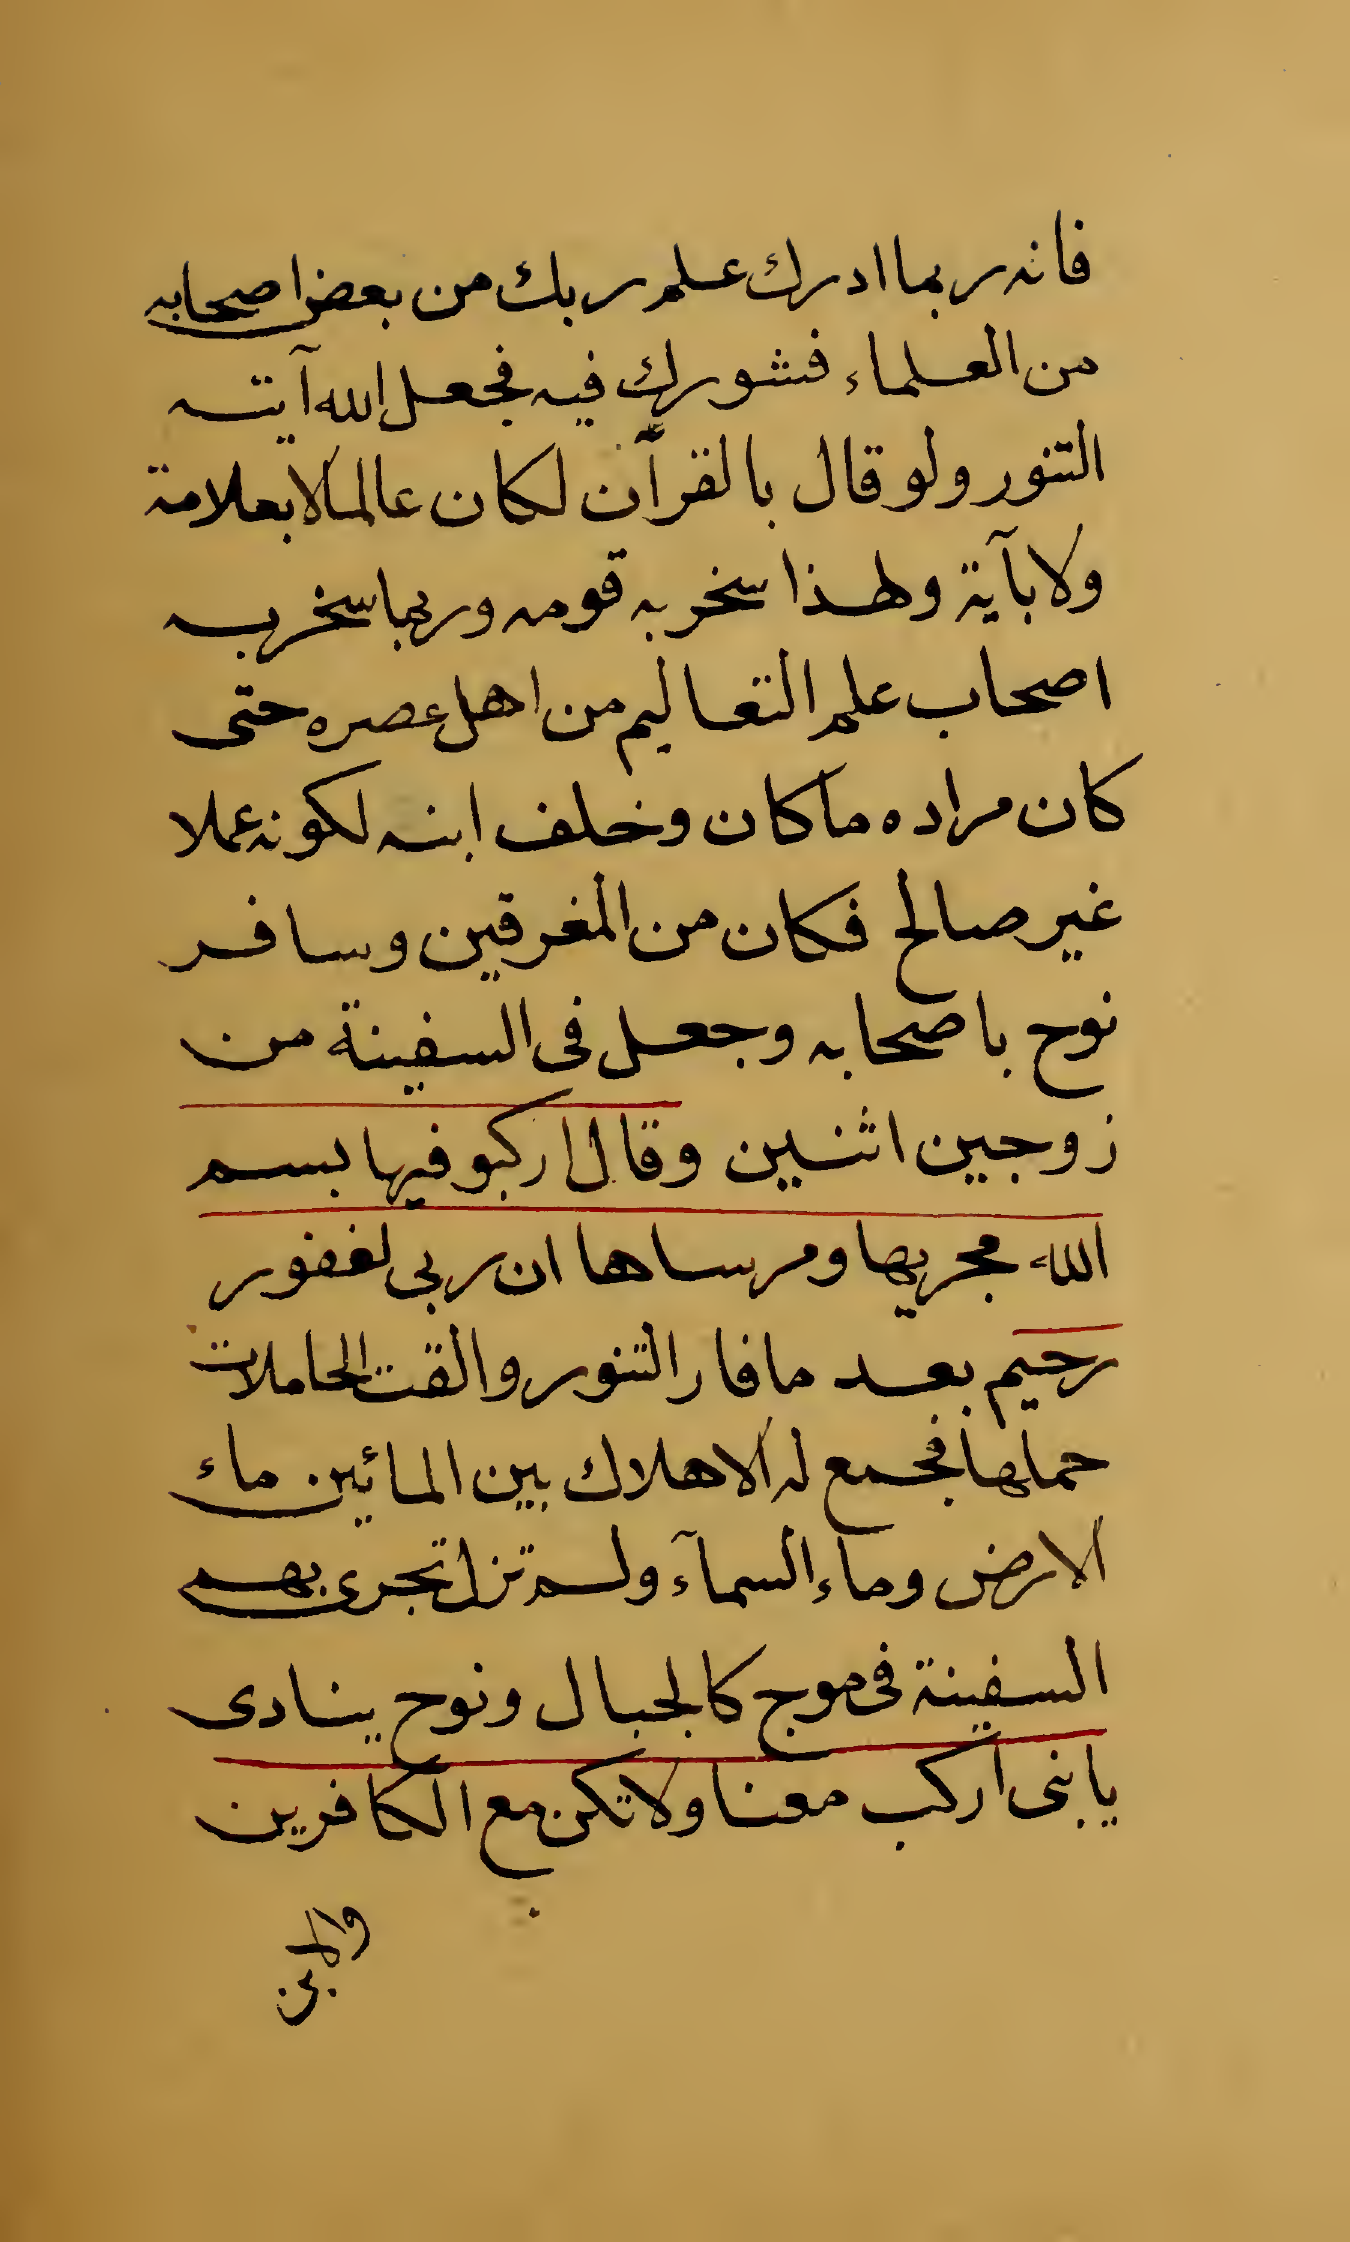 فانه ربما ادرك علم ربك من بعض اصحابه
من العلماء فشورك فيه فجعل الله آيته
التنور ولو قال بالقرآن لكان عالما لا بعلامة
ولا بآية ولهذا سخر به قومه وربما سخر به
اصحاب علم التعاليم من اهل عصره حتى
كان مراده ما كان وخلف ابنه لكونه عملا
غير صالح فكان من المغرقين وسافر
نوح باصحابه وجعل فى السفينة من
زوجين اثنين وقال اركبو فيها بسم
الله مجريها ومرساها ان ربى لغفور
رحيم بعد ما فار التنور والقت الحاملات
حملها فجمع له الاهلاك بين المائين ماء
الارض وماء السمآء ولم تزل تجرى بهم
السفينة فى موج كالجبال ونوح ينادى
يا بنى اركب معنا ولا تكن مع الكافرين